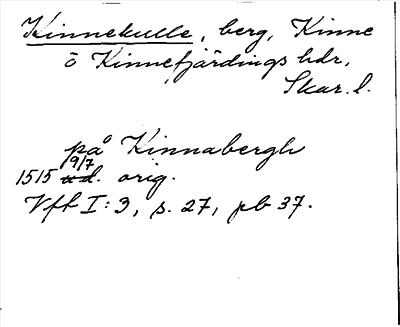 Kinnekulle, berg, Kinne
o Kinnefjärdings hdr,
Skar. l.
på Kinnabergh
1515 19/7 orig.
Vfk I:3, s. 27, pb 37.